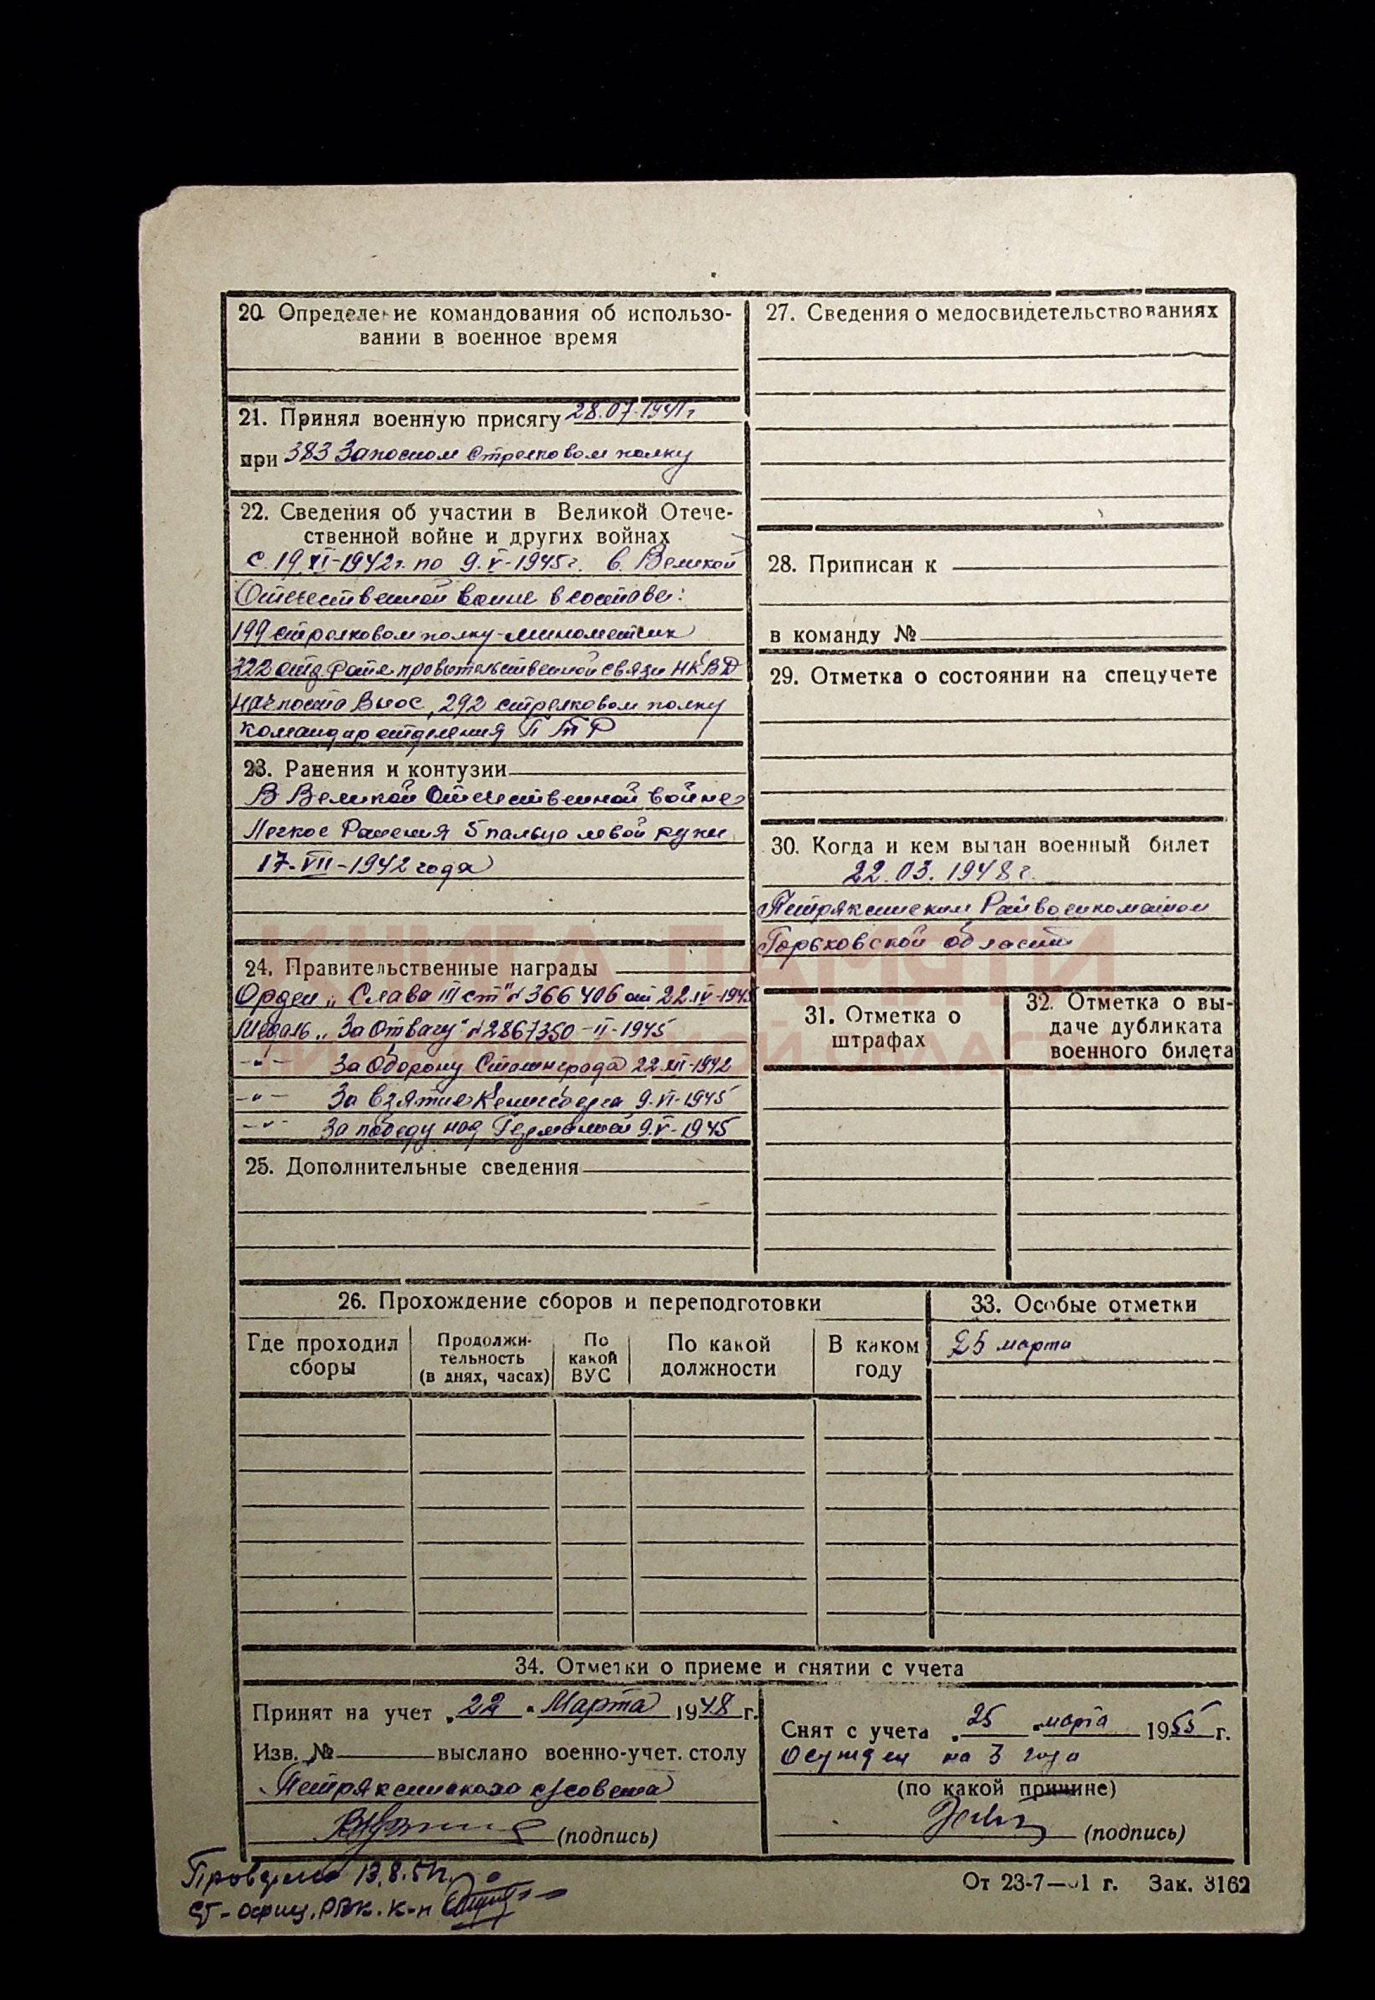 20. Определение командования об использо-
вании в военное время
21. Принял военную присягу 28.07.1941 г
при 383 Запосном стрелковом полку
22. Сведения об участии в Великой Отече-
ственной войне и других войнах
с 19.XI-1942г. по 9.V-1945г. в Великой
Отечественной войне в составе:
199 стрелковом полку-минометчик
322 отд. роте провительственной связи НКВД
нач поста Внос, 292 стрелковом полку
командир отделения ПТР
23. Ранения и контузии
В Великой Отечественной войне
Легкое Ранения 5 пальца левой руки
17-VII-1942 года
24. Правительственные награды
Орден „Слава III ст" № 366406 от 22.IV-1945
Медаль „За Отвагу" № 2867350 -II-1945
-"- За Оборону Сталинграда 22.XII-1942
-"- За взятие Кенигсберга 9.VI-1945
-"- За победу над Германией 9.V-1945
25. Дополнительные сведения
27. Сведения о медосвидетельствованиях
28. Приписан к
в команду №
29. Отметка о состоянии на спецучете
30. Когда и кем выдан военный билет
22.03.1948 г.
Петряксинским Райвоенкоматом
Горьковской области
31. Отметка о
штрафах
32. Отметка о вы-
даче дубликата
военного билета
КНИГА ПАМЯТИ
НИЖЕГОРОДСКОЙ ОБЛАСТИ
26. Прохождение сборов и переподготовки
Где проходил
сборы
Продолжи-
тельность
(в днях, часах)
По
какой
ВУС
По какой
должности
В каком
году
33. Особые отметки
25 марта
34. Отметки о приеме и снятии с учета
Принят на учет „22" Марта 1948 г.
Изв. № выслано военно-учет. столу
Петряксинского с/совета
(подпись)
Снят с учета „25" марта 1955 г.
Осужден на 3 года
(по какой причине)
(подпись)
Проверено 13.8.51г.
ст-офиц. РВК. к-н
От 23-7— 1 г. Зак. 3162